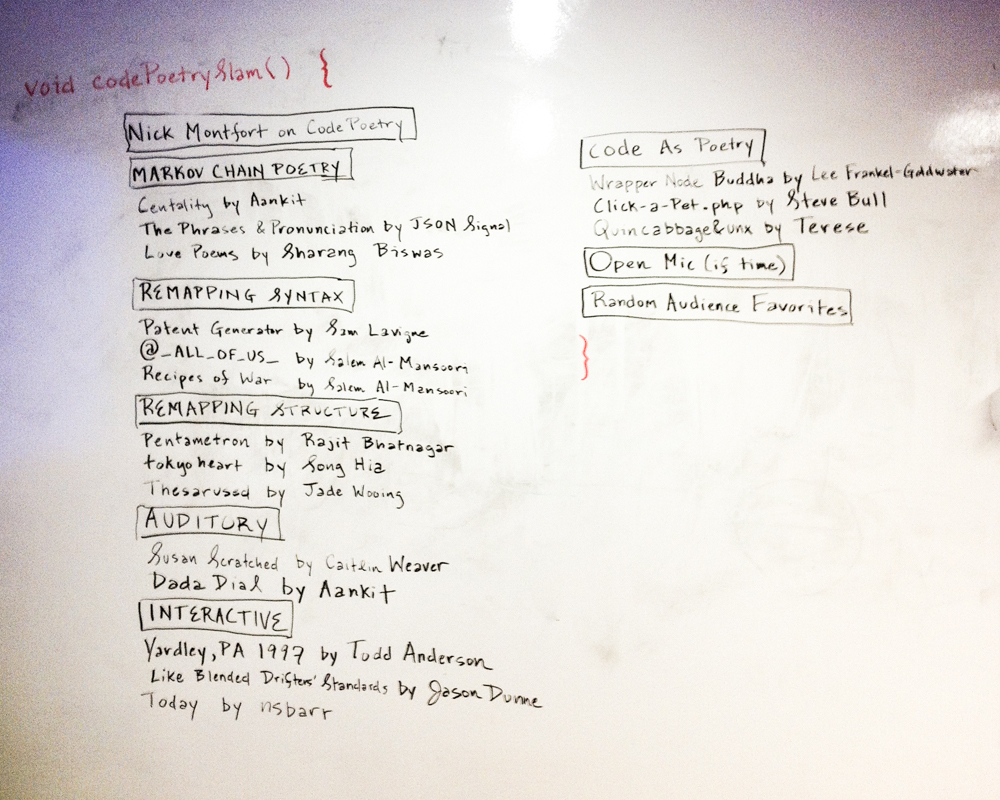 void codePoetrySlam() {
Nick Montfort on Code Poetry
MARKOV CHAIN POETRY
Centality by Aankit
The Phrases & Pronunciation by JSON Signal
Love Poems by Sharang Biswas
REMAPPING SYNTAX
Patent Generator by Sam Lavigne
@_ALL_OF_US_ by Salem Al-Mansoori
Recipes of War by Salem Al-Mansoori
REMAPPING STRUCTURE
Pentametron by Rajit Bhatnagar
tokyoheart by Song Hia
Thesarussd by Jade Wooing
AUDITORY
Susan Scratched by Caitlin Weaver
Dada Dial by Aankit
INTERACTIVE
Yardley, PA 1997 by Todd Anderson
Like Blended Drifters' Standards by Jason Dunne
Today by nsbarr
Code As Poetry
Wrapper Node Buddha by Lee Frankel-Goldwater
Click-a-Pet.php by Steve Bull
Quincabbage&unx by Terese
Open Mic (if time)
Random Audience Favorites
}